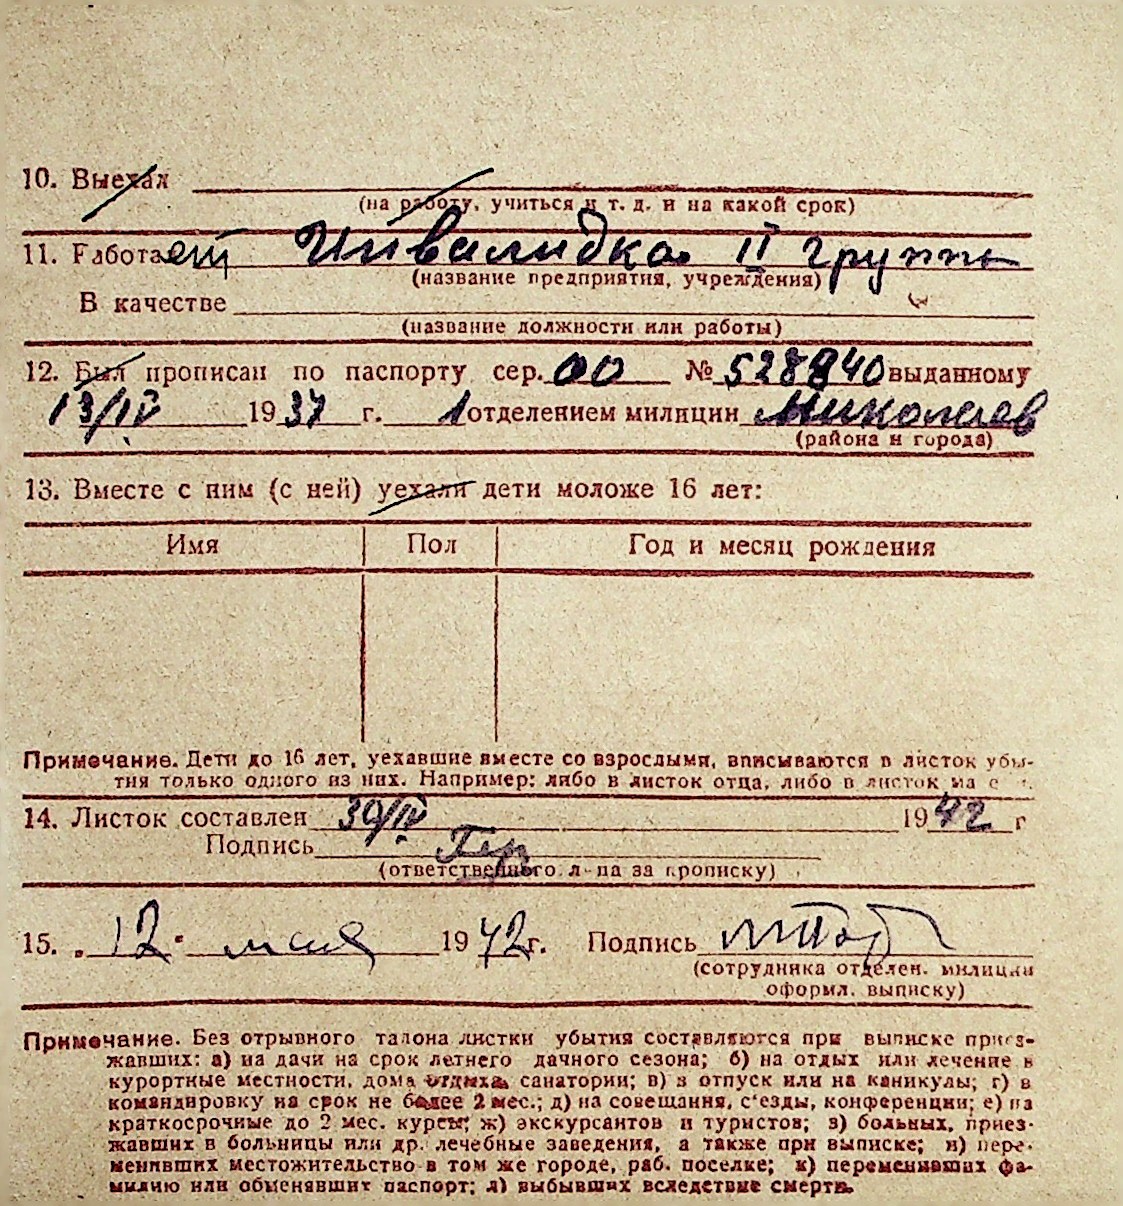 10. Выехал
(на работу, учиться и т. д. и на какой срок)
11. Работает Инвалидка II группы
(название предприятия, учреждения)
В качестве
(название должности или работы)
12. Был прописан по паспорту сер. 00 № 528840 выданному
13/IV 1937 г. 1 отделением милиции Николаев
(района и города)
13. Вместе с ним (с ней) уехали дети моложе 16 лет:
Имя Пол Год и месяц рождения
Примечание. Дети до 16 лет, уехавшие вместе со взрослыми, вписываются в листок убы-
тия только одного из них. Например: либо в листок отца, либо в листок
14. Листок составлен 30/IV 1942 г
Подпись
(ответственного л-ца за прописку)
15. „12" мая 1942 г. Подпись
(сотрудника отделен. милиции
оформл. выписку)
Примечание. Без отрывного талона листки убытия составляются при выписке приез-
жавших: а) на дачи на срок летнего дачного сезона; б) на отдых или лечение в
курортные местности, дома отдыха, санатории; в) в отпуск или на каникулы; г) в
командировку на срок не более 2 мес.; д) на совещания, с'езды, конференции; е) на
краткосрочные до 2 мес. курсы; ж) экскурсантов и туристов; з) больных, приез-
жавших в больницы или др. лечебные заведения, а также при выписке; и) пере-
менивших местожительство в том же городе, раб. поселке; к) переменивших фа-
милию или обменявших паспорт; л) выбывших вследствие смерти.